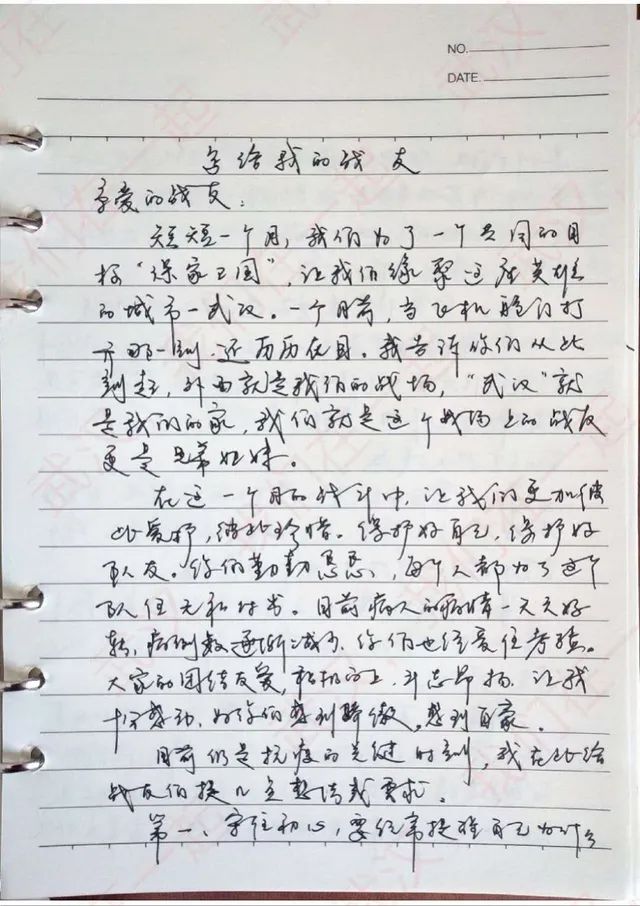 NO.
DATE.
写给我的战友
亲爱的战友：
短短一个月，我们为了一个共同的目
标“保家卫国”，让我们缘聚这座英雄
的城市—武汉。一个月前，当飞机舱门打
开那一刻，还历历在目。我告诉你们从此
刻起，外面就是我们的战场，“武汉”就
是我们的家，我们就是这个战场上的战友
更是兄弟姐妹。
在这一个月的战斗中，让我们更加彼
此爱护，彼此珍惜。保护好自己，保护好
队友。你们勤勤恳恳，每个人都为了这个
队伍无私付出。目前病人的病情一天天好
转，病例数逐渐减少，你们也经受住考验。
大家的团结友爱，积极向上，斗志昂扬，让我
十分感动，为你们感到骄傲，感到自豪。
目前仍是抗疫的关键时刻，我在此给
战友们提几点热情或要求。
第一、守住初心，要经常提醒自己为什么
武汉
我们在一起